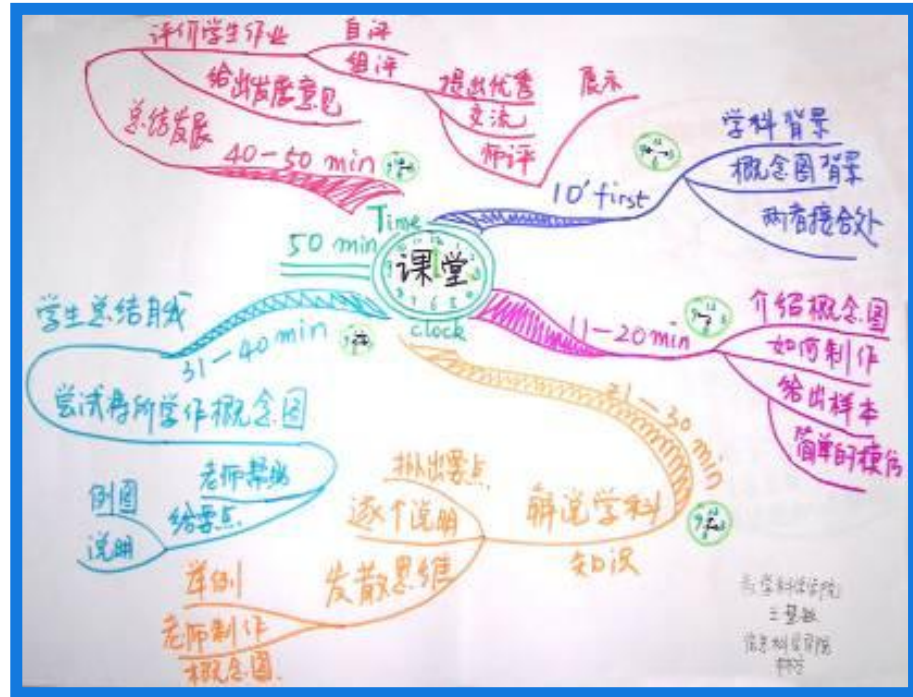 课堂
Time
clock
50 min
10' first
学科背景
概念图背景
两者接合处
11-20 min
介绍概念图
如何制作
给出样本
简单的模仿
21-30 min
解说学科
知识
拟出要点
逐个说明
发散思维
举例
老师制作
概念图
31-40 min
学生总结
尝试将所学作概念图
老师帮助
给要点
例图
说明
40-50 min
总结发展
给出发展意见
评价学生作业
自评
组评
提出优秀
交流
师评
展示